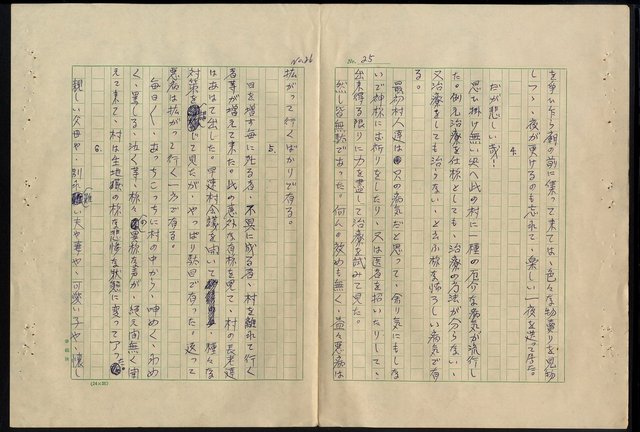 No. 25
を争ひ乍ら廟の前に集って来ては、色々な物賣りを見物
しつゝ、夜が更けるのも忘れて、楽しい一夜を造って来た。
4.
だが悲しい哉!
思ひ掛け無い央へ此の村に一種の奇妙な病気が流行し
た。例え治療を仕様としても、治療の方法が分らない、
又治療をしても治らない、と云ふ極く恐ろしい病気で有
る。
最初村人達は只の病気だと思って、余り気にもしな
いで神様にお祈りをしたり、又は医者を招いたりして、
出来得る限りに力を盡して治療を試みて見た。
然し皆無駄であった。何んの効めも無く、益々悪病は
No. 26
拡がって行くばかりで有る。
5.
日を増す毎に死る者、不具に成る者、村を離れて行く
者等が増えて来た。此の意外な有様を見て、村の長老達
はあはて出した。早速村会議を開いて種々な
対策を講じて見たが、やっぱり駄目で有った。返って
悪病は拡がって行く一方で有る。
毎日〱、あっちこっちに村の中から、呻めく、わめ
く、罵しる、泣く等、様々の異様な声が、絶え間無く聞
えて来て、村は生地獄の様な悲惨な状態に変って了った。
6.
親しい父母や、別れ難い夫や妻や、可愛い子や、懐し
(24×25)